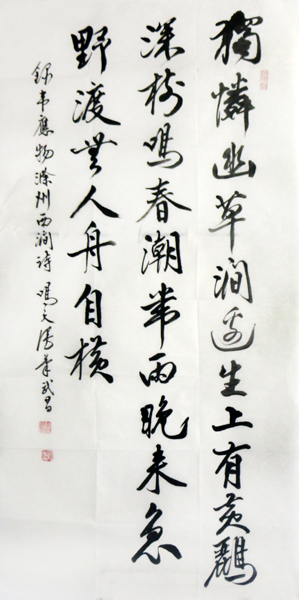 獨憐幽草澗邊生上有黃鸝
深樹鳴春潮帶雨晚來急
野渡無人舟自橫
錄韋應物滁州西澗詩 鳴